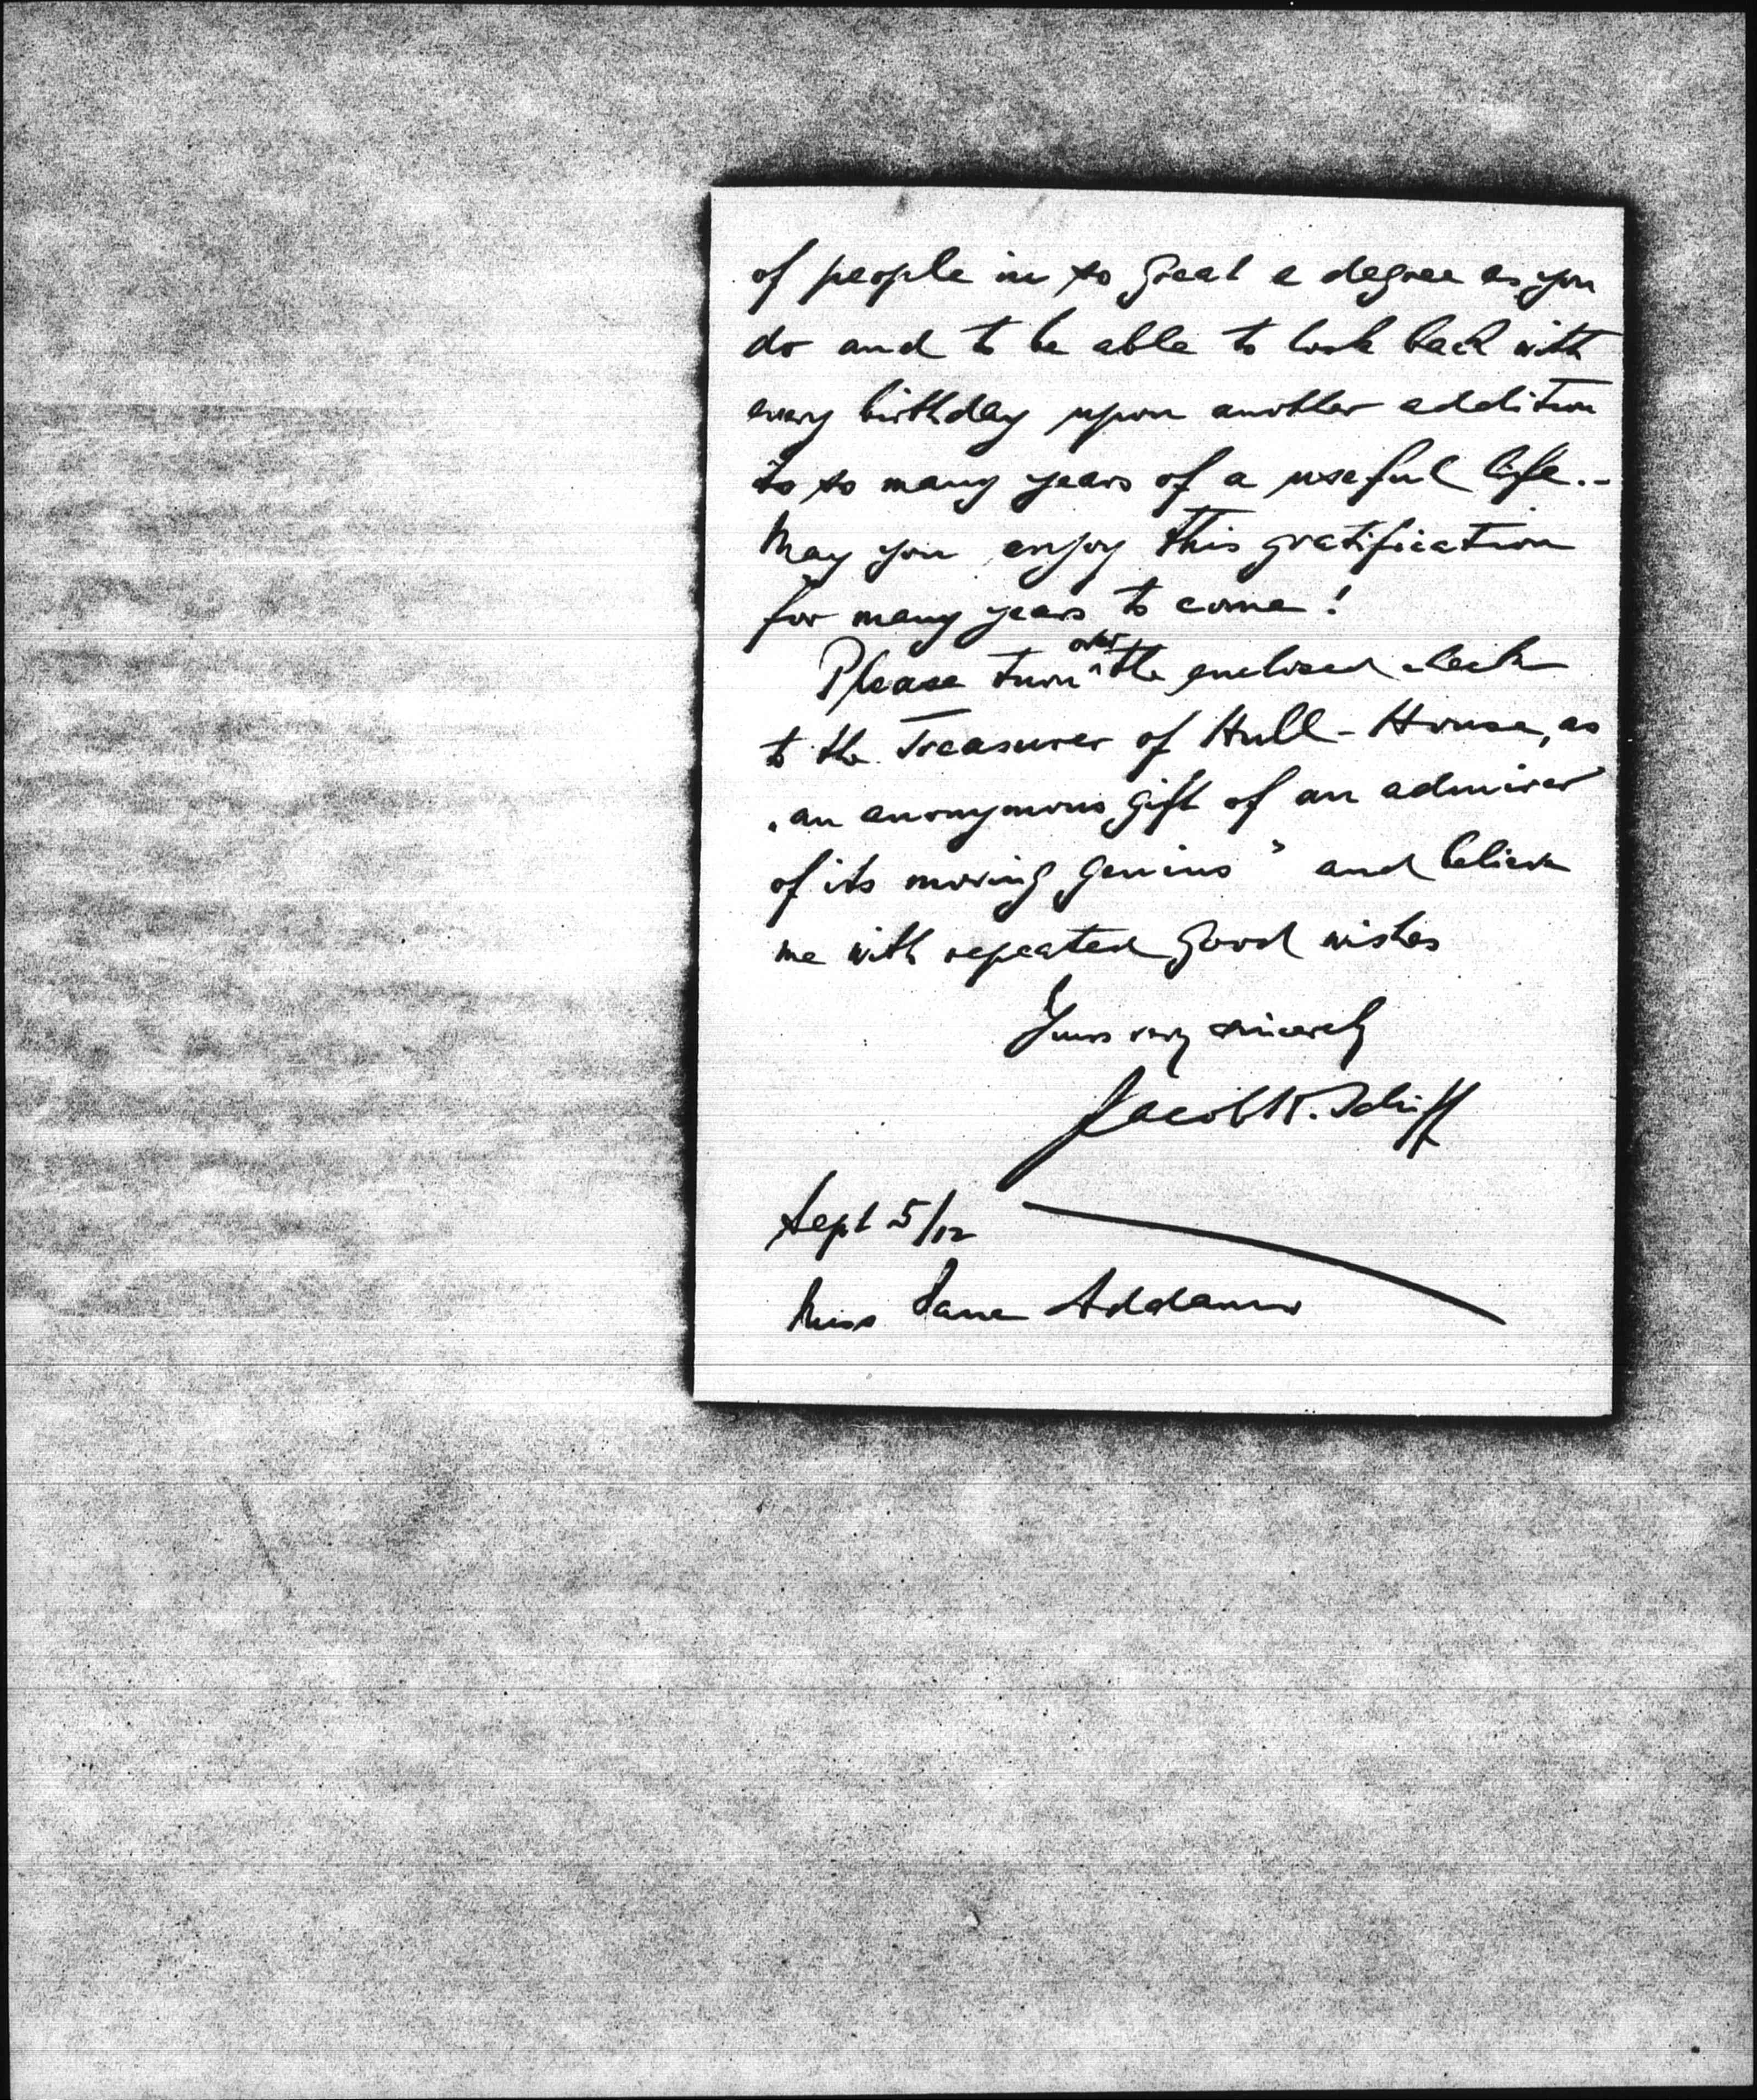 of people in so great a degree as you
do and to be able to look back with
every birthday upon another addition
to so many years of a useful life.-
May you enjoy this gratification
for many years to come!
Please turn ^over the enclosed check
to the Treasurer of Hull-House, as
„an anonymous gift of an admirer
of its moving genius" and believe
me with repeated good wishes
Yours very sincerely
Jacob H. Schiff
Sept 5/12
Miss Jane Addams